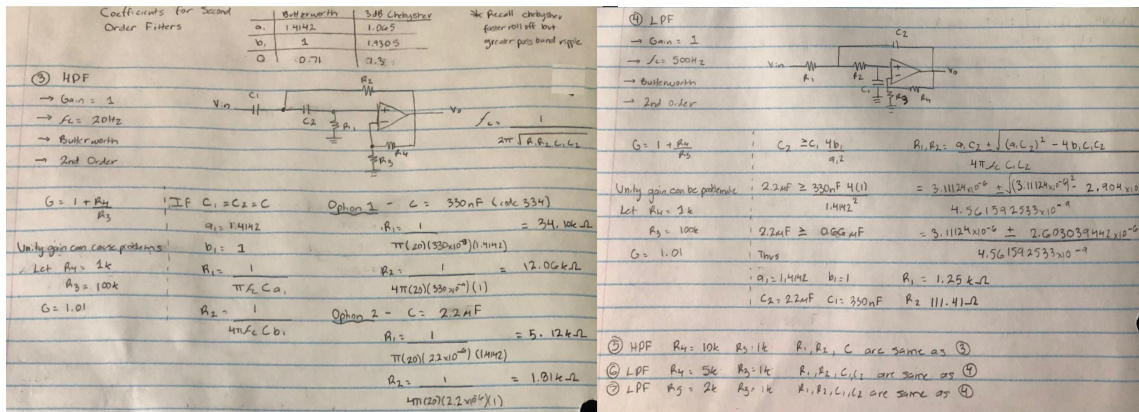 Coefficients for Second
Order Filters
Butterworth 3dB Chebysher
a, 1.4142 1.065
b, 1 1.9305
Q 0.71
* Recall chebysher
faster roll off but
greater pass band ripple
③ HPF
→ Gain = 1
→ fc = 20Hz
→ Butterworth
→ 2nd Order
Vin C1 C2 R1 R2 R3 R4 Vo
fc = 1
2π √R1R2C1C2
G = 1 + R4
R3
Unity gain can cause problems
Let R4 = 1k
R3 = 100k
G = 1.01
IF C1 = C2 = C
a1 = 1.4142
b1 = 1
R1 = 1
π fc C a1
R2 = 1
4π fc C b1
Option 1 - C = 330nF (code 334)
R1 = 1 = 34.10kΩ
π(20)(330x10⁻⁹)(1.4142)
R2 = 1 = 12.06kΩ
4π(20)(330x10⁻⁹)(1)
Option 2 - C = 2.2μF
R1 = 1 = 5.12kΩ
π(20)(2.2x10⁻⁶)(1.4142)
R2 = 1 = 1.81kΩ
4π(20)(2.2x10⁻⁶)(1)
④ LPF
→ Gain = 1
→ fc = 500Hz
→ Butterworth
→ 2nd order
Vin R1 R2 C1 C2 R3 R4 Vo
G = 1 + R4
R3
Unity gain can be problematic
Let R4 = 1k
R3 = 100k
G = 1.01
C2 ≥ C1 4b1
a1²
2.2μF ≥ 330nF 4(1)
1.4142²
2.2μF ≥ 0.66μF
Thus
a1 = 1.4142 b1 = 1
C2 = 2.2μF C1 = 330nF
R1, R2 = a1C2 ± √(a1C2)² - 4b1C1C2
4π fc C1C2
= 3.11124x10⁻⁶ ± √(3.11124x10⁻⁶)² - 2.904x10
4.561592533x10⁻⁹
= 3.11124x10⁻⁶ ± 2.603039442x10⁻⁶
4.561592533x10⁻⁹
R1 = 1.25kΩ
R2 111.41Ω
⑤ HPF R4 = 10k R3 = 1k R1, R2, C are same as ③
⑥ LPF R4 = 5k R3 = 1k R1, R2, C1, C2 are same as ④
⑦ LPF R5 = 2k R3 = 1k R1, R2, C1, C2 are same as ④